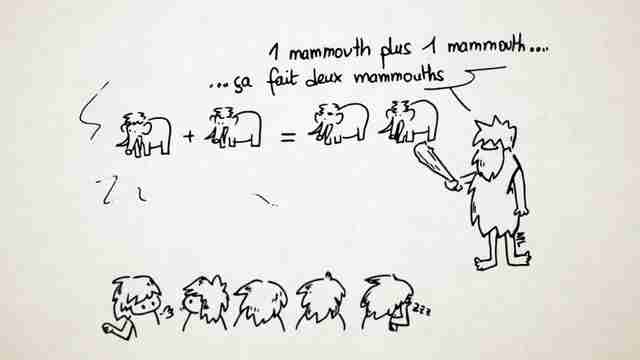 1 mammouth plus 1 mammouth....
...ça fait deux mammouths
+ =
zzz